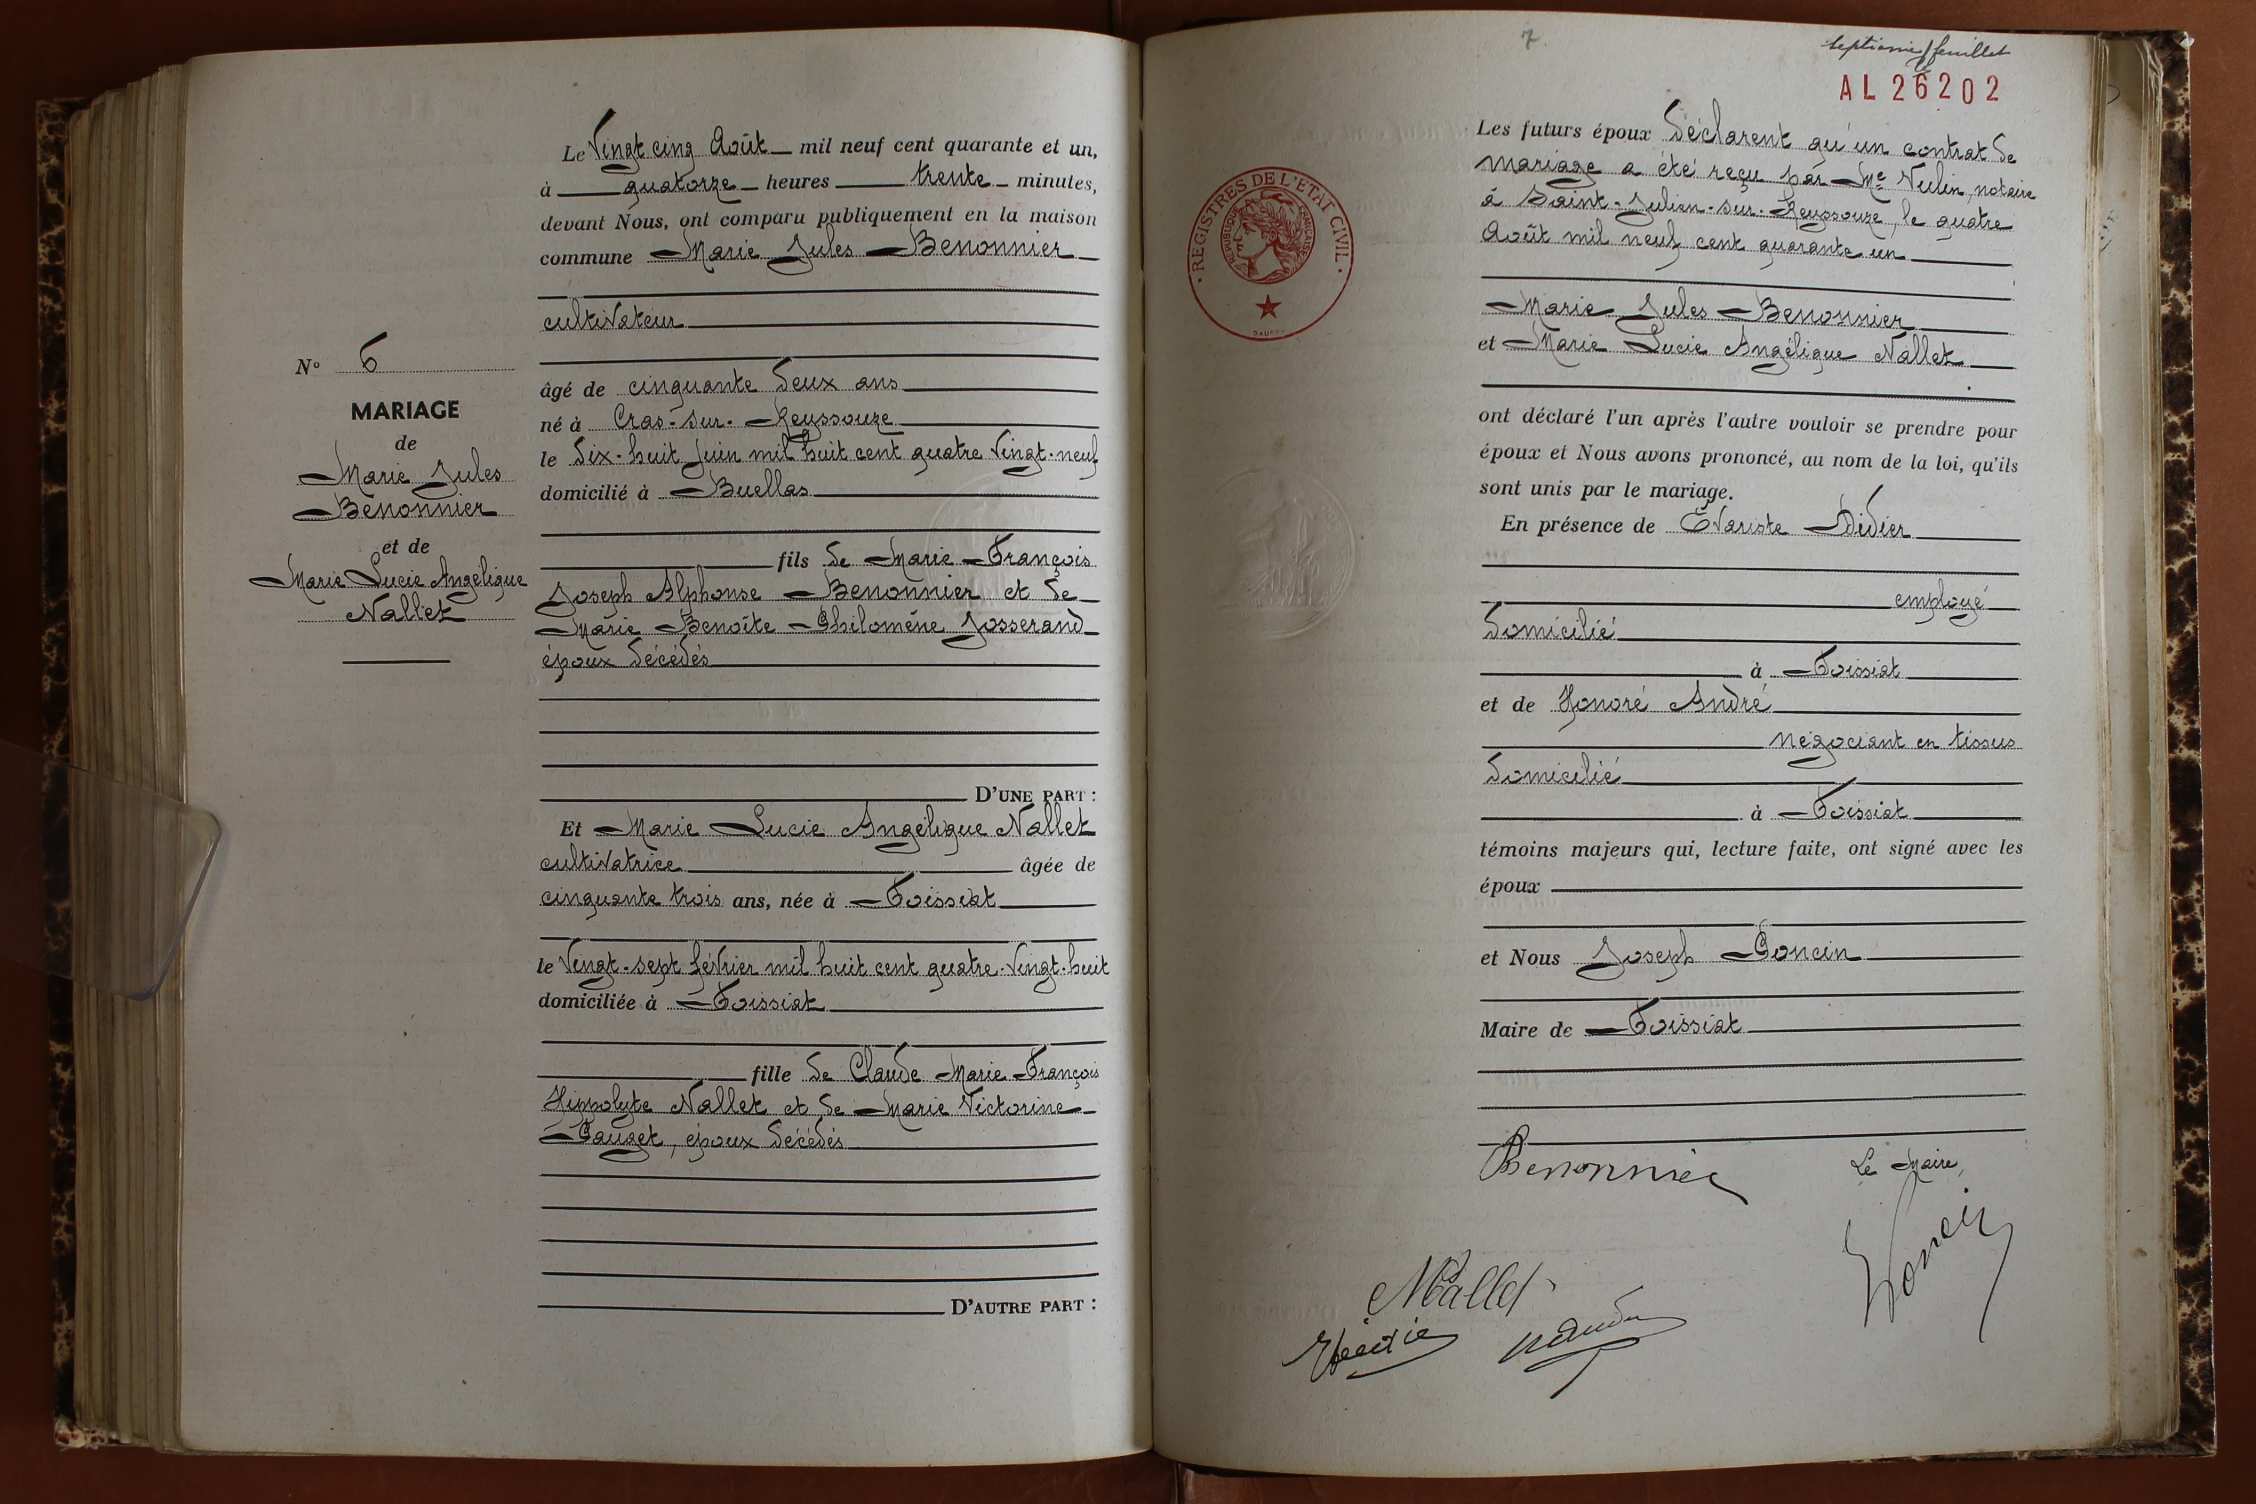 Le Vingt cinq Août mil neuf cent quarante et un,
à quatorze heures trente minutes,
devant Nous, ont comparu publiquement en la maison
commune Marie Jules Benonnier
cultivateur
âgé de cinquante deux ans
né à Cras-sur-Reyssouze
le dix-huit Juin mil huit cent quatre vingt-neuf
domicilié à Buellas
fils de Marie François
Joseph Alphonse Benonnier et de
Marie Benoîte Philomène Josserand
époux décédés
D'UNE PART :
N° 6
MARIAGE
de
Marie Jules
Benonnier
et de
Marie Lucie Angélique
Nallet
Et Marie Lucie Angélique Nallet
cultivatrice âgée de
cinquante trois ans, née à Foissiat
le vingt-sept février mil huit cent quatre-vingt-huit
domiciliée à Foissiat
fille de Claude Marie François
Hippolyte Nallet et de Marie Victorine
Pauget, époux décédés
D'AUTRE PART :
7
septième feuillet
AL 26202
REGISTRES DE L'ETAT CIVIL
REPUBLIQUE FRANCAISE
Les futurs époux déclarent qu'un contrat de
mariage a été reçu par Me Vulin, notaire
à Saint-Julien-sur-Reyssouze, le quatre
Août mil neuf cent quarante un
Marie Jules Benonnier
et Marie Lucie Angélique Nallet
ont déclaré l'un après l'autre vouloir se prendre pour
époux et Nous avons prononcé, au nom de la loi, qu'ils
sont unis par le mariage.
En présence de Evariste Didier
employé
domicilié
à Foissiat
et de Honoré André
négociant en tissus
domicilié
à Foissiat
témoins majeurs qui, lecture faite, ont signé avec les
époux
et Nous Joseph Poncin
Maire de Foissiat
Benonnier
Le Maire,
Poncin
Nallet